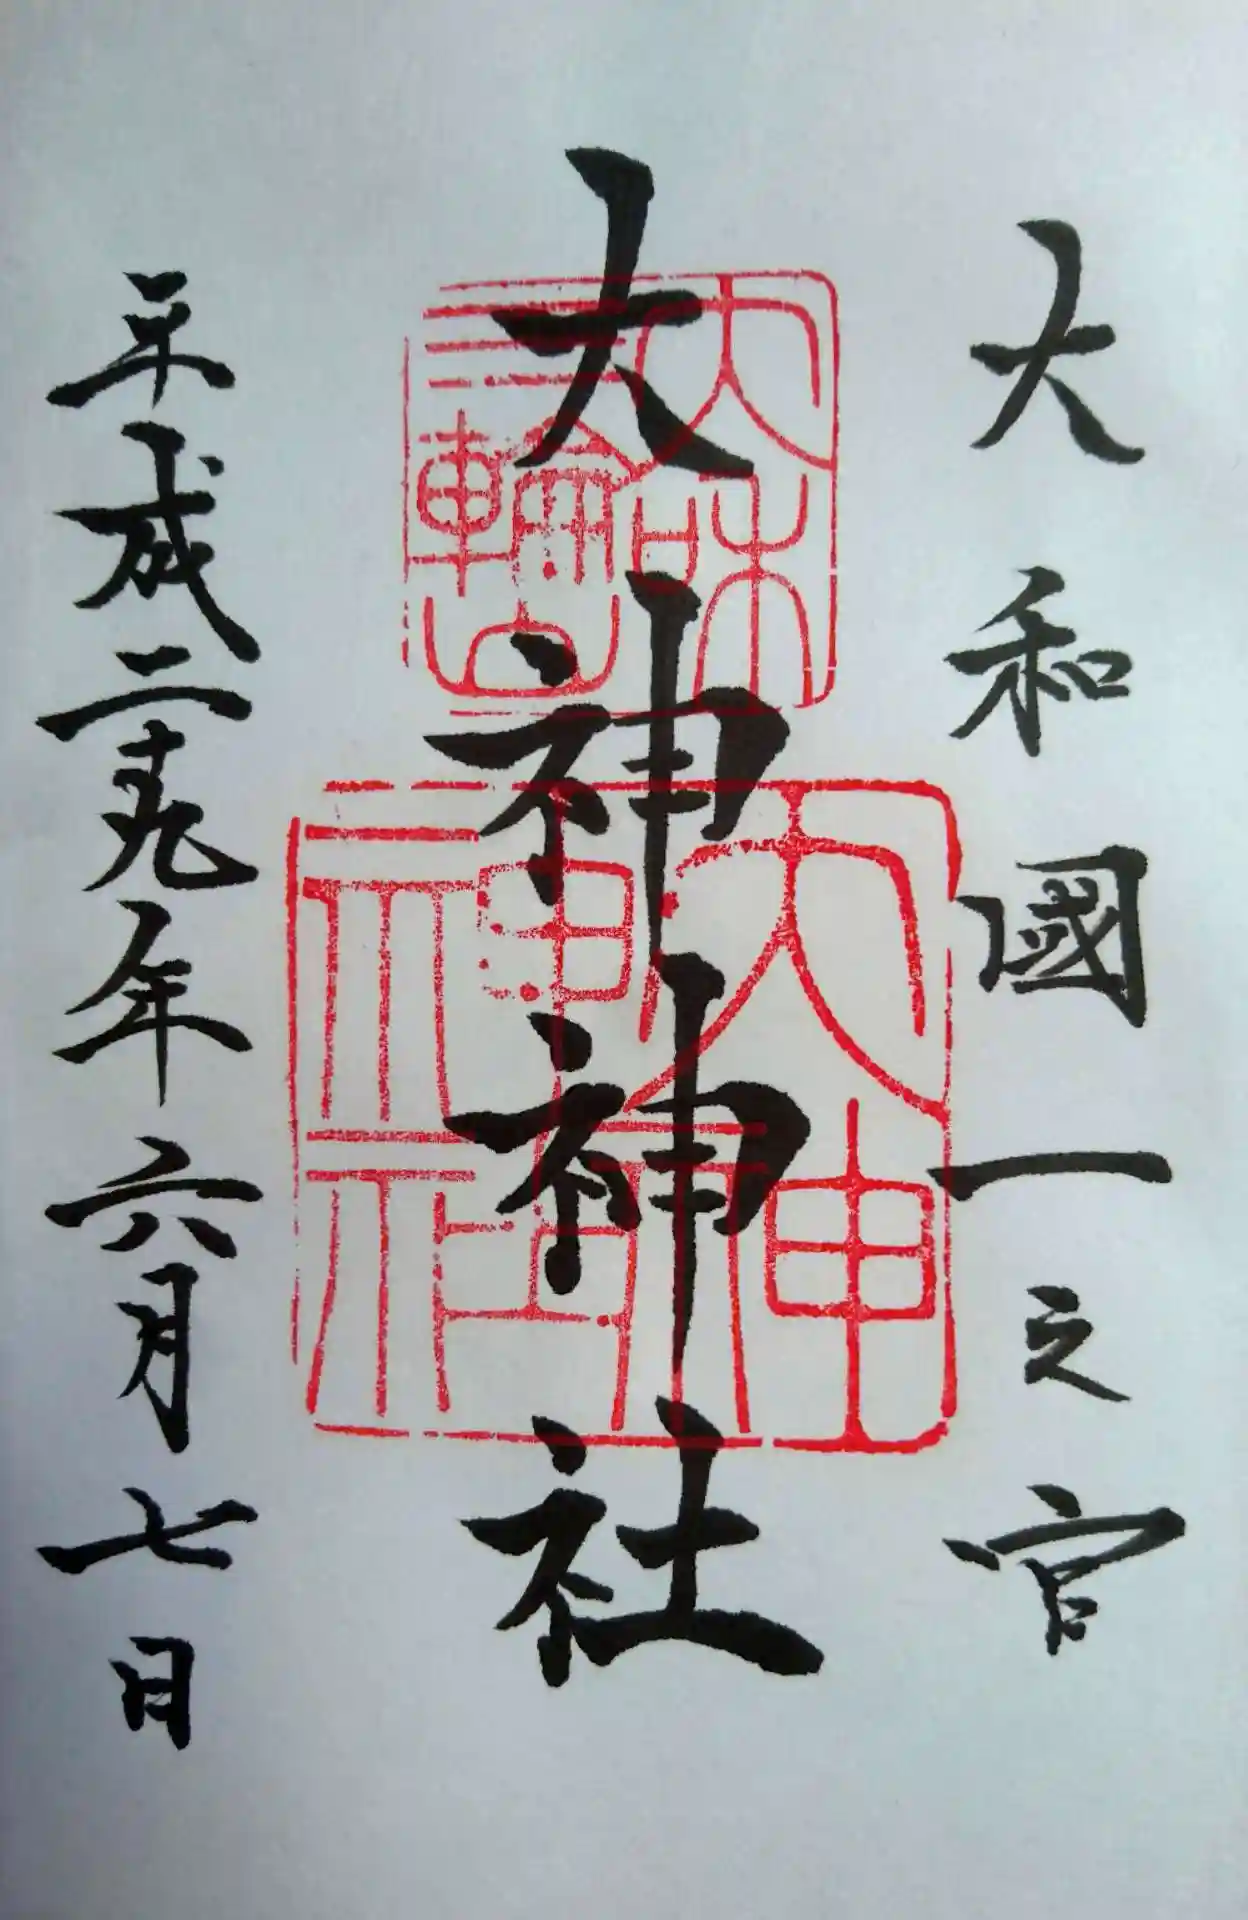 大和國一之宮
大神神社
平成二十九年六月七日
大和
三輪山
大神
神社